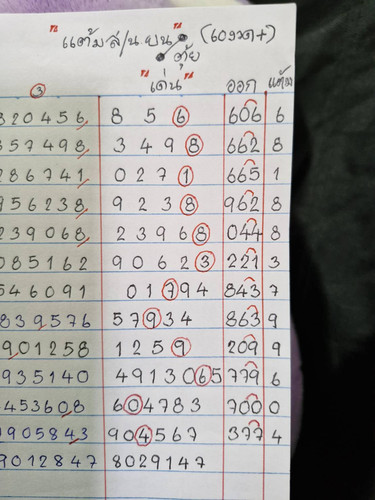 แต้ม สี/น.ยน (เองวด+)
ตุ้ย
③ เด่น ออก แต้ม
320456 8 5 6 606 6
357498 3 4 9 8 662 8
286741 0 2 7 1 665 1
956238 9 2 3 8 962 8
239068 2 3 9 6 8 044 8
085162 9 0 6 2 3 221 3
546091 0 1 7 9 4 843 7
839576 5 7 9 3 4 863 9
901258 1 2 5 9 209 9
935140 4 9 1 3 0 6 5 779 6
453608 6 0 4 7 8 3 700 0
905843 9 0 4 5 6 7 377 4
9012847 8029147